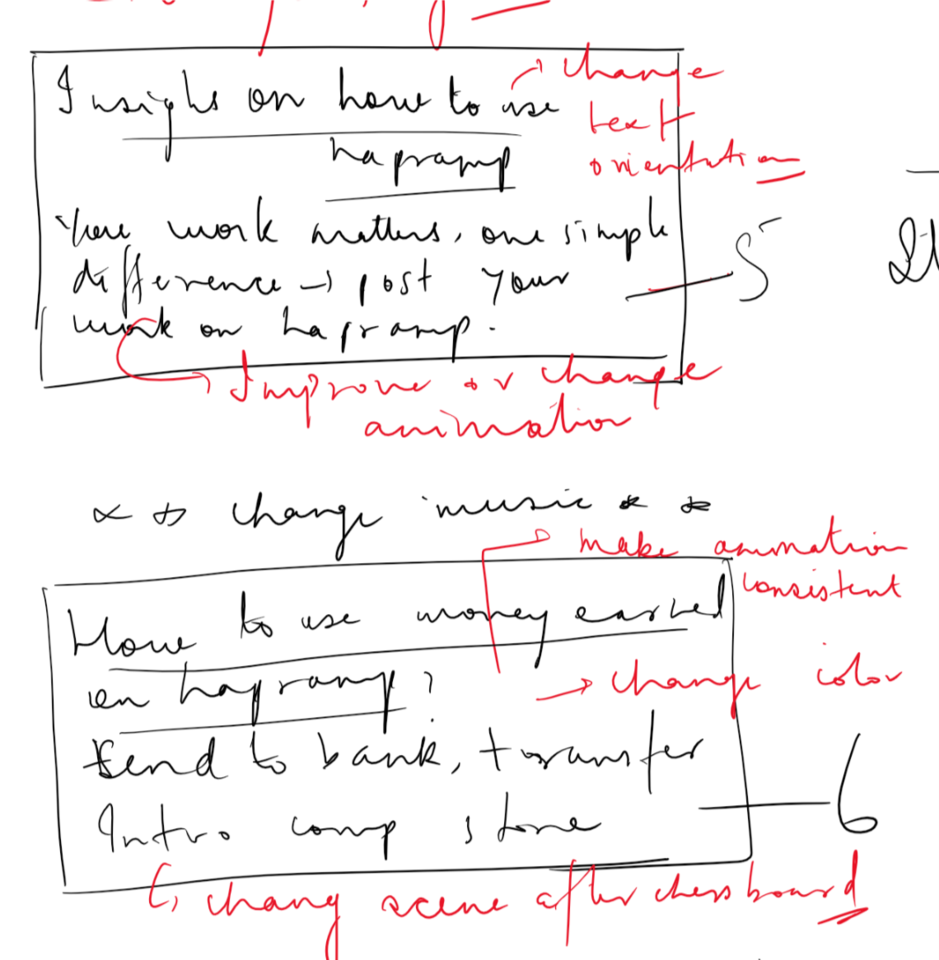 Insighs on how to use
hapramp
change
text
orientation
Your work matters, one simple
difference → post your
work on hapramp.
5
Improve or change
animation
change music * *
make animation
consistent
How to use money earned
on hapramp?
→ change color
send to bank, transfer
Intro comp store
6
chang scene after chessboard